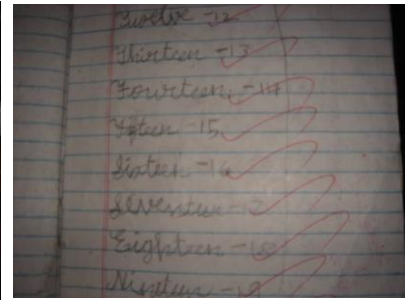 Twelve -12
Thirteen -13
Fourteen -14
Fifteen -15
Sixteen -16
Seventeen -17
Eighteen -18
Nineteen -19